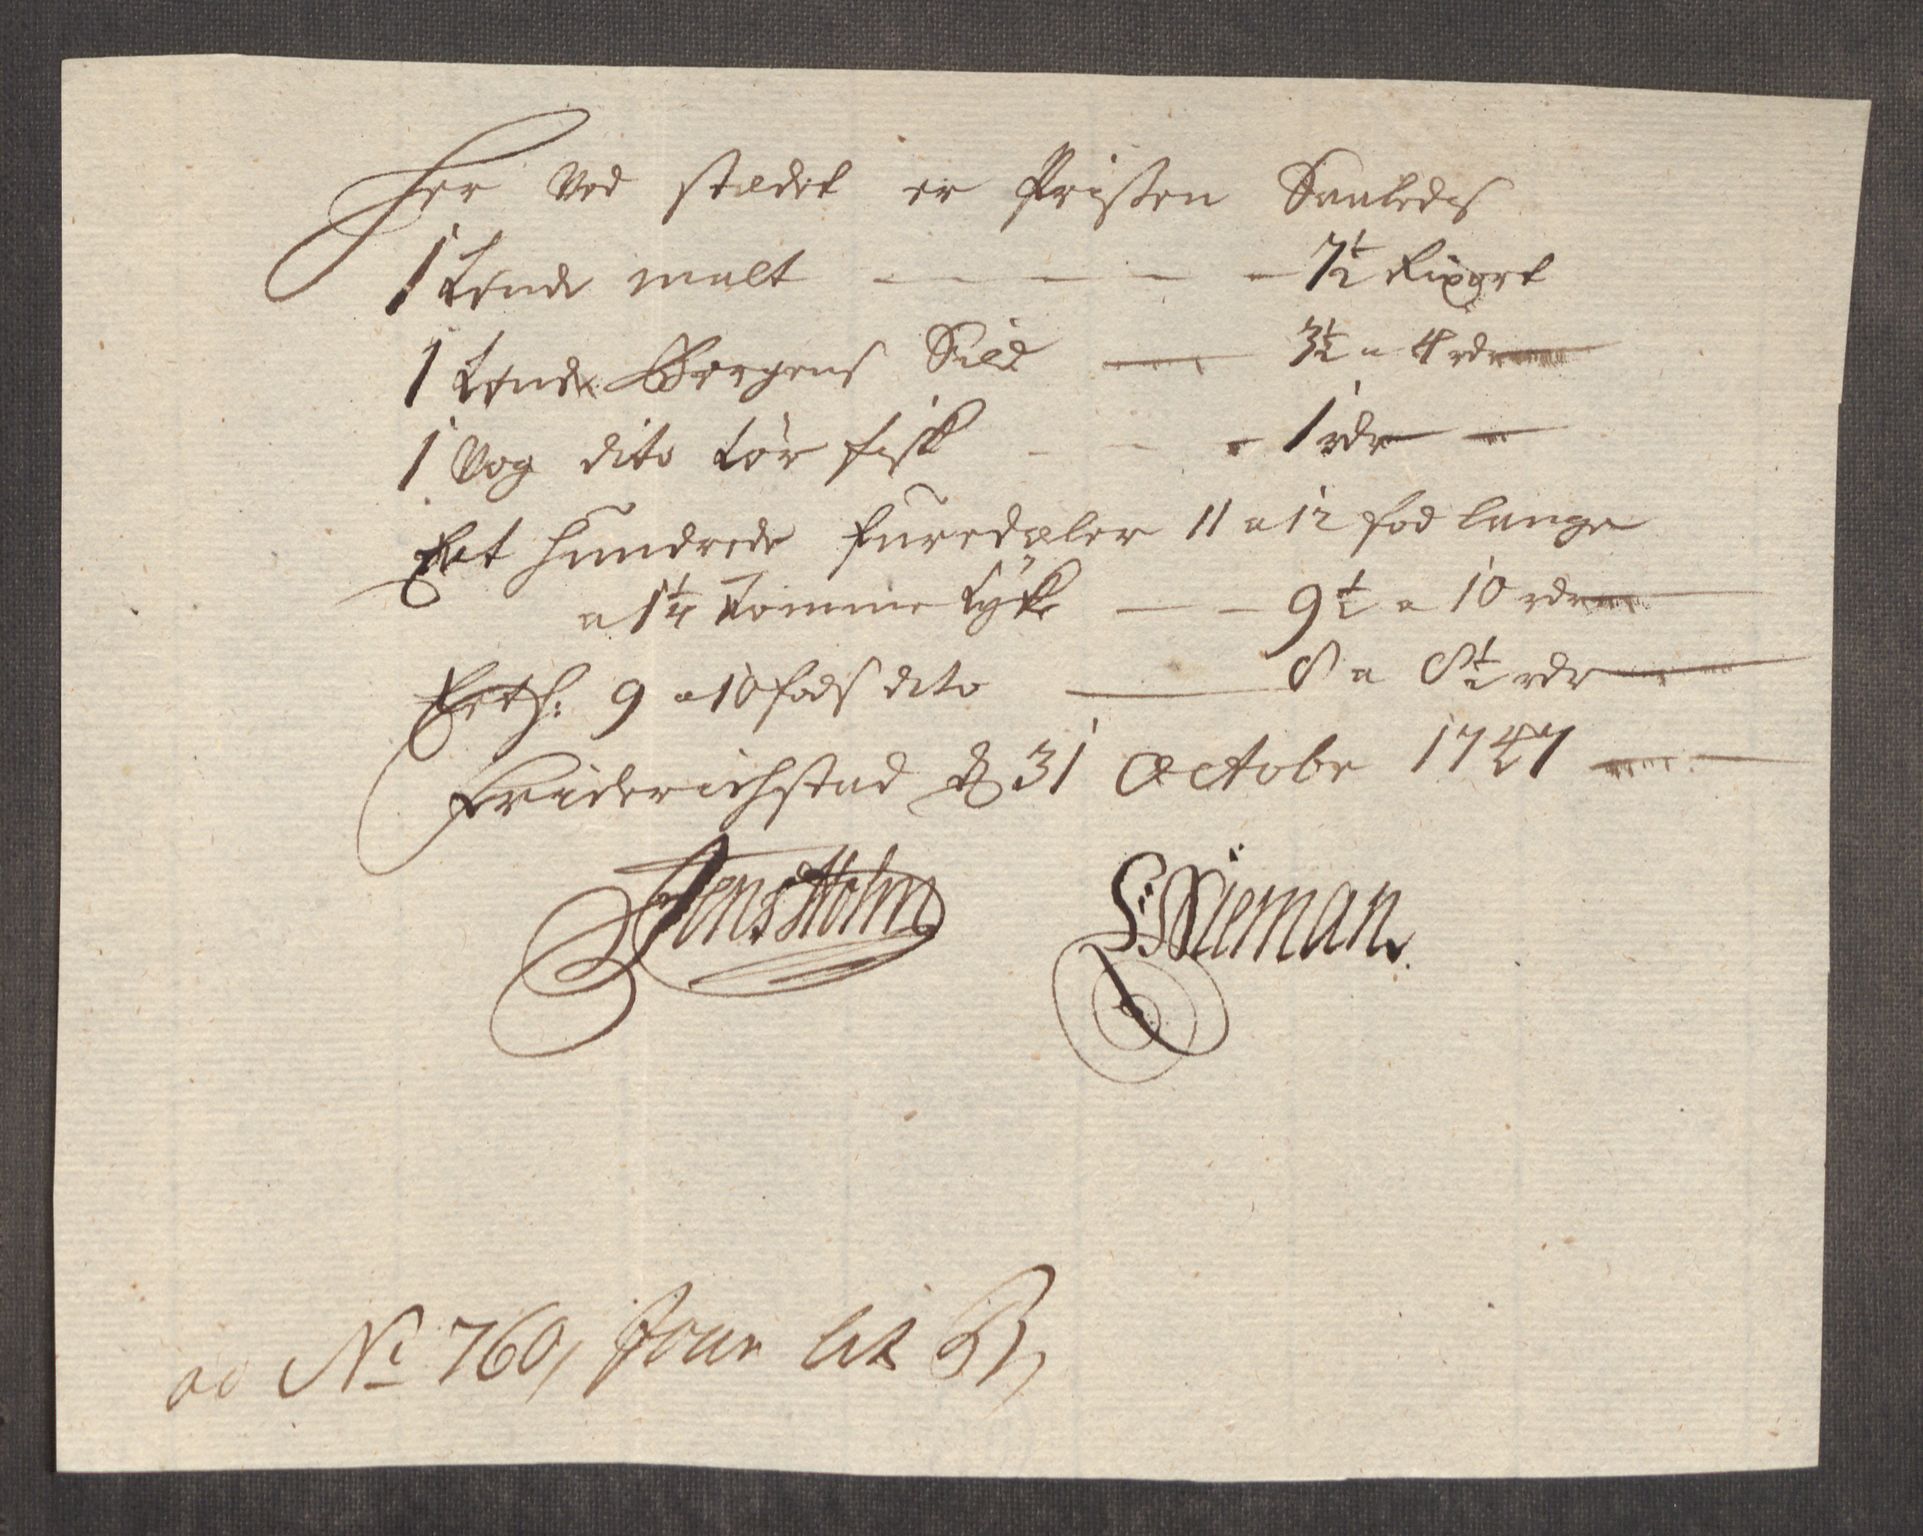 Her ved stædet er Prissen Saaledis
1 tønde malt — — — — — 7½ Rixort
1 tønde Bergens Sild — 3½ a 4 rdr
1 vog dito tør fisk — — — 1 rdr
Eet hundrede furedæler 11 a 12 fod lange
a 1¼ tomme tyke — — 9½ a 10 rdr
9 a 10 fods dito — 8 a 8½ rdr
Friderichstad d 31 Octobr 1747
Jens Holm S: Nieman
ad No 760, Jour lit B,